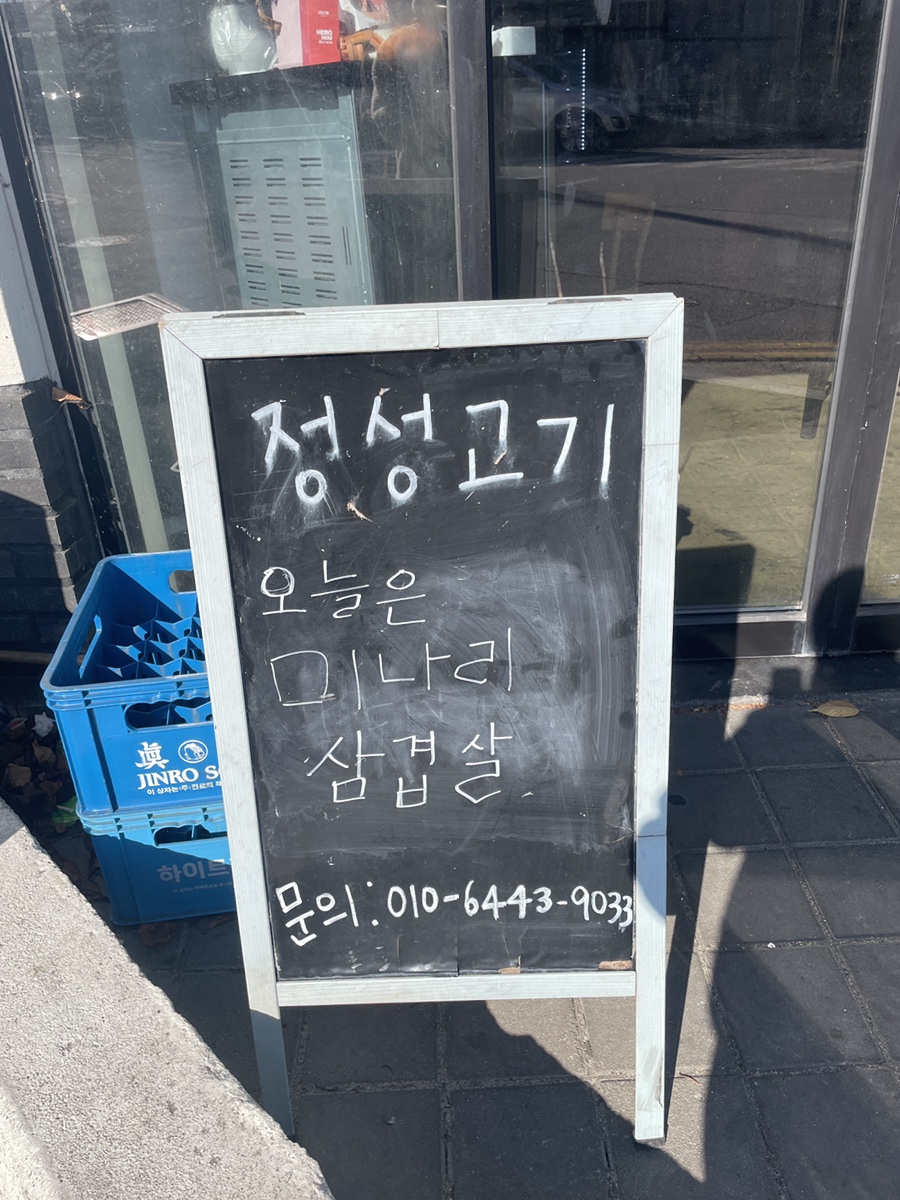 정성고기
오늘은
미나리
삼겹살
문의: 010-6443-9033
眞
JINRO S
이 상자는 (주) 진로의 재
하이트